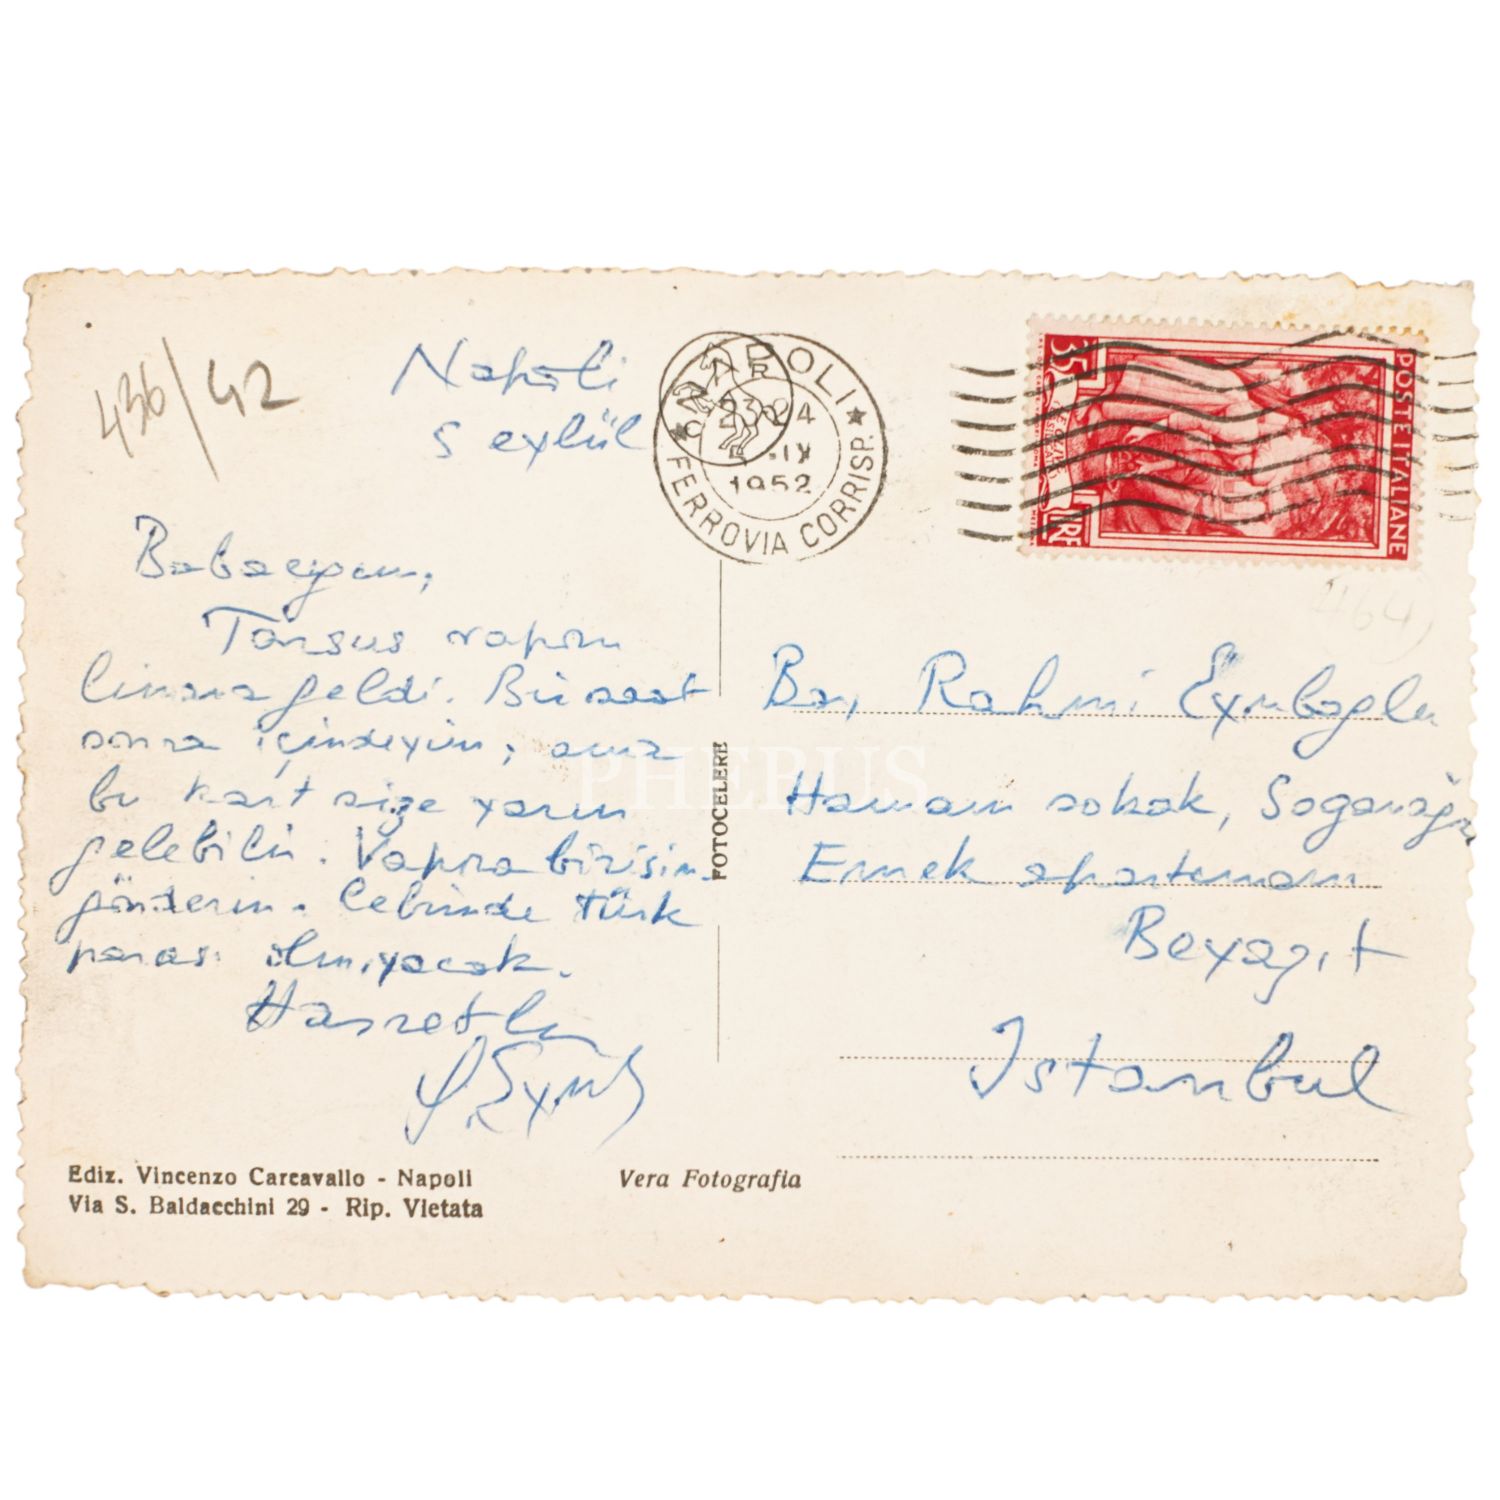 436/42
Napoli
5 eylül
NAPOLI
23-24
5.IX
1952
FERROVIA CORRISP.
35
LIRE
POSTE ITALIANE
Babacığım,
Tarsus vapuru
limana geldi. Bir saat
sonra içindeyim, ama
bu kart size yarın
gelebilir. Vapura birisini
gönderin. Cebimde türk
parası olmıyacak.
Hasretle
Bay Rahmi Eyuboğlu
Hamam sokak, Soğanağa
Emek apartmanı
Beyazıt
Istanbul
FOTOCELERE
PHEBUS
Ediz. Vincenzo Carcavallo - Napoli
Via S. Baldacchini 29 - Rip. Vietata
Vera Fotografia